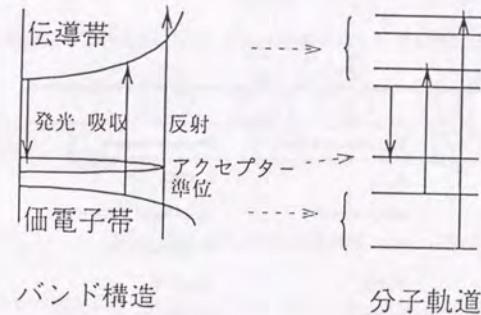 伝導帯
発光 吸収 反射
アクセプター
準位
価電子帯
バンド構造 分子軌道